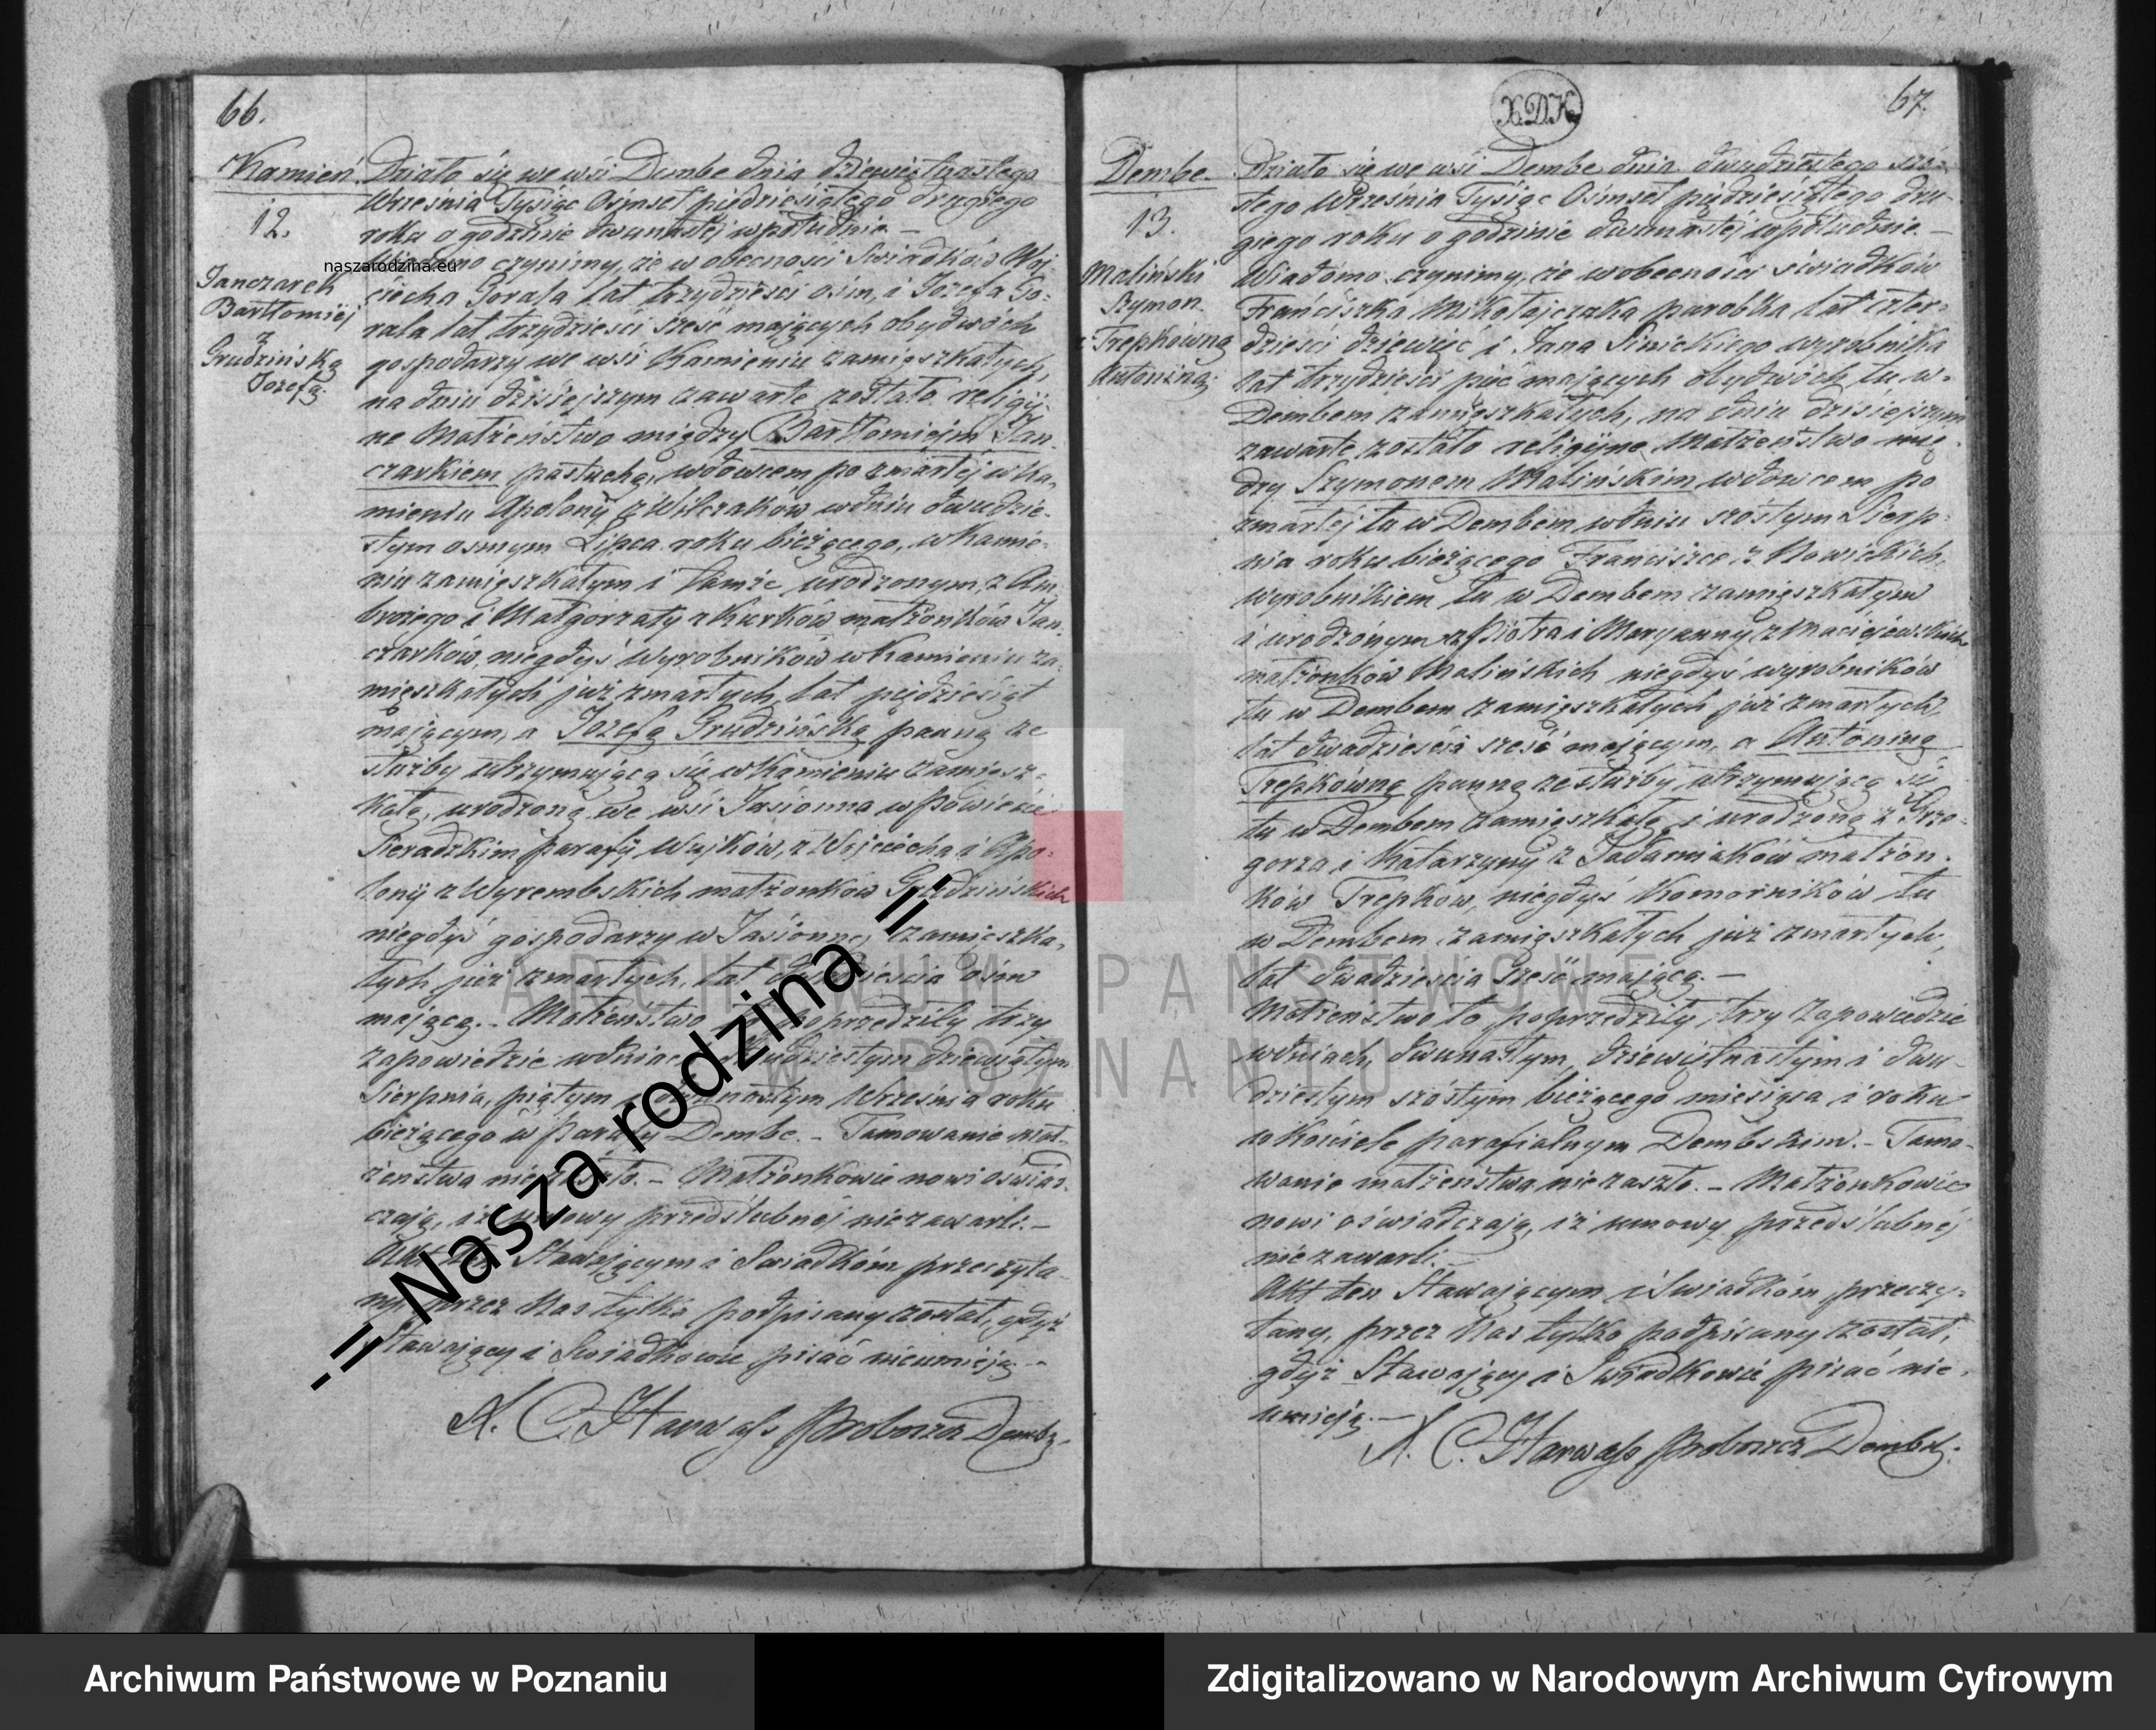 66.
Kamień.
12.
Janczarek
Bartłomiéj
z
Grudzińską
Józefą.
Działo się we wsi Dembe dnia dziewiętnastego
Września Tysiąc Ośmset pięćdziesiątego drugiego
roku o godzinie dwunastéj w południe. —
Wiadomo czynimy, że w obecności Świadków Woj
ciecha Gorala lat trzydzieści ośm, i Józefa Go-
rala lat trzydzieści sześć mających obydwóch
gospodarzy we wsi Kamieniu zamięszkałych,
na dniu dzisiejszym zawarte zostało religij-
ne Małżeństwo między Bartłomiejem Jan-
czarkiem pastuchą, wdowcem po zmarłéj w Ka-
mieniu Apolonij z Wilczaków w dniu dwudzie-
stym osmym Lipca roku bieżącego, w Kamie-
niu zamięszkałym i tamże urodzonym, z Am
brożego i Małgorzaty z Kurków małżonków Jan-
czarków, niegdyś Wyrobników w Kamieniu za-
mięszkałych już zmarłych, lat pięćdziesiąt
mającym, a Józefą Grudzińską panną ze
służby utrzymującą się w Kamieniu zamięsz-
kałą, urodzoną we wsi Jasionna w Powiecie
Sieradzkim parafij Wojków, z Wojciecha i Apo-
lonij z Wyrembskich małżonków Grudzińskich
niegdyś gospodarzy w Jasionnej zamięszka-
łych już zmarłych, lat dwadzieścia ośm
mającą. — Małżeństwo to poprzedziły trzy
zapowiedzie w dniach dwudziestym dziewiątym
Sierpnia, piątym i dwunastym Września roku
bieżącego w Parafij Dembe. — Tamowanie Mał-
żeństwa nie zaszło. — Małżonkowie nowi oświad-
czają, iż umowy przedślubnéj nie zawarli. —
Akt ten Stawającym i Świadkóm przeczyta-
ny, przez Nas tylko podpisany został, gdyż
Stawający i Świadkowie pisać nieumieją. —
X. C. Harwass Proboszcz Dembs.
XDK
67.
Dembe.
13.
Maliński
Szymon
z Trepkówną
Antoniną.
Działo się we wsi Dembe dnia dwudziestego szó-
stego Września Tysiąc Ośmset pięćdziesiątego dru-
giego roku o godzinie dwunastéj w południe. —
Wiadomo czynimy, że w obecności świadków
Franciszka Mikołajczaka parobka lat czter-
dzieści dziewięć i Jana Sinickiego wyrobnika
lat trzydzieści pięć mających obydwóch tu w
Dembem zamięszkałych, na dniu dzisiejszym
zawarte zostało religijne Małżeństwo mię-
dzy Szymonem Malińskim wdowcem po
zmarłéj tu w Dembem w dniu szóstym Sierp-
nia roku bieżącego Franciszce z Nowickich,
wyrobnikiem tu w Dembem zamięszkałym
i urodzonym z Piotra i Maryanny z Maciejewskich
małżonków Malińskich niegdyś wyrobników
tu w Dembem zamięszkałych już zmarłych,
lat dwadzieścia sześć mającym, a Antoniną
Trepkówną panną ze służby utrzymującą się
tu w Dembem zamięszkałą i urodzoną z Grze-
gorza i Katarzyny z Jadamiaków małżon-
ków Trepków, niegdyś Komorników tu
w Dembem zamięszkałych już zmarłych,
lat dwadzieścia sześć mającą. —
Małżeństwo to poprzedziły trzy zapowiedzie
w dniach, dwunastym, dziewiętnastym i dwu-
dziestym szóstym bieżącego miesiąca i roku
w Kościele parafialnym Dembskim. — Tamo-
wanie małżeństwa nie zaszło. — Małżonkowie
nowi oświadczają, iż umowy przedślubnéj
nie zawarli. —
Akt ten Stawającym i Świadkóm przeczy-
tany, przez Nas tylko podpisany został,
gdyż Stawający i Świadkowie pisać nie
umieją. —
X. C. Harwass Proboszcz Dembs.
naszarodzina.eu
-= Nasza rodzina =-
ARCHIWUM PAŃSTWOWE
W POZNANIU
Archiwum Państwowe w Poznaniu
Zdigitalizowano w Narodowym Archiwum Cyfrowym